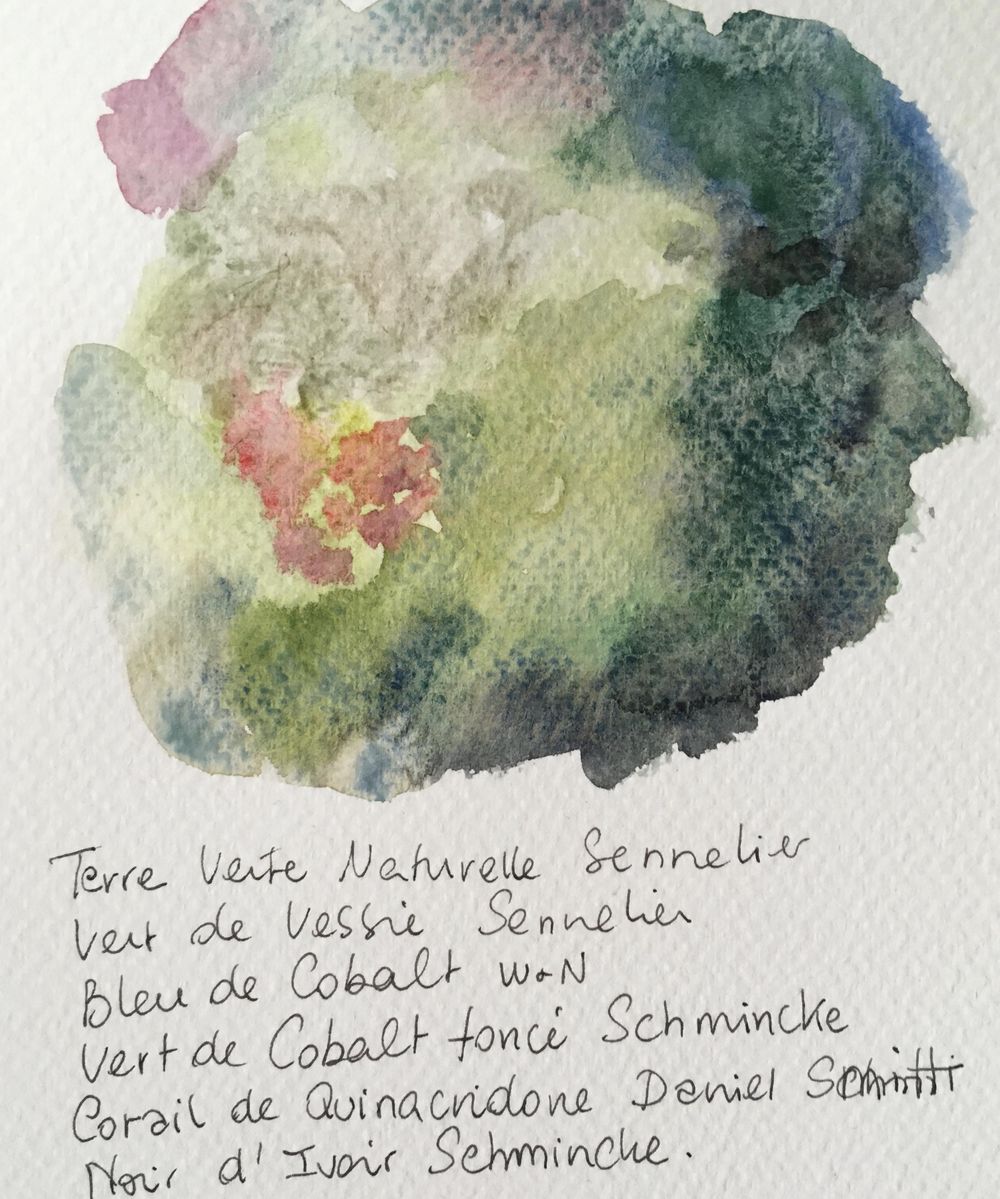 Terre Verte Naturelle Sennelier
Vert de Vessie Sennelier
Bleu de Cobalt W&N
Vert de Cobalt foncé Schmincke
Corail de Quinacridone Daniel
Noir d'Ivoir Schmincke.